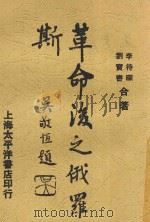 李待琛
劉寶書
合著
革命後之俄羅
斯
吳敬恒題
上海太平洋書店印行